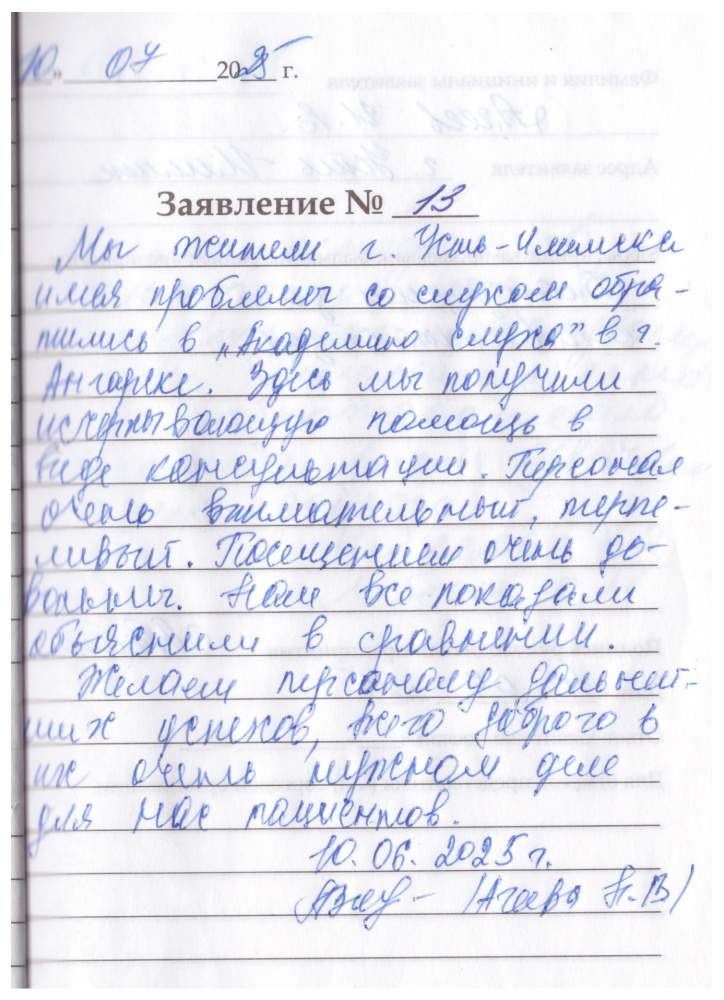 10" 07 2025 г.
Заявление № 13
Мы жители г Усть-Илимска
имея проблемы со слухом обра-
тились в „Академию слуха" в г.
Ангарске. Здесь мы получили
исчерпывающую помощь в
виде консультации. Персонал
очень внимательный, терпе-
ливый. Посещением очень до-
вольны. Нам все показали
обьяснили в сравнении.
Желаем персоналу дальней-
ших успехов, всего доброго в
их очень нужном деле
для нас пациентов.
10.06.2025 г.
(Агаева Н.В)